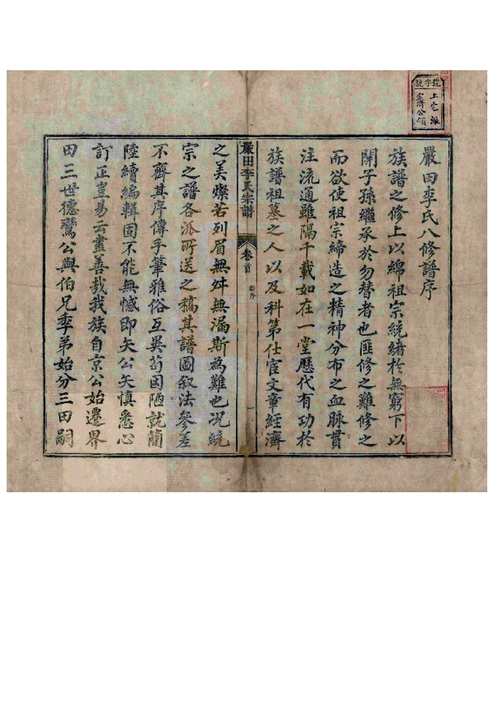 嚴田李氏八修譜序
族譜之修上以綿祖宗統緒於無窮下以
開子孫繼承於勿替者也匪修之難修之
而欲使祖宗締造之精神分布之血脉貫
注流通雖隔千載如在一堂歷代有功於
族譜祖墓之人以及科第仕宦文章經濟
嚴田李氏宗譜
卷首
之美燦若列眉無舛無漏斯為難也况統
宗之譜各派所送之稿其譜圖叙法參差
不齊其序傳手筆雅俗互異苟因陋就簡
陸續編輯固不能無憾即矢公矢慎悉心
訂正豈易云盡善哉我族自京公始遷界
田三世德鸞公與伯兄季弟始分三田嗣